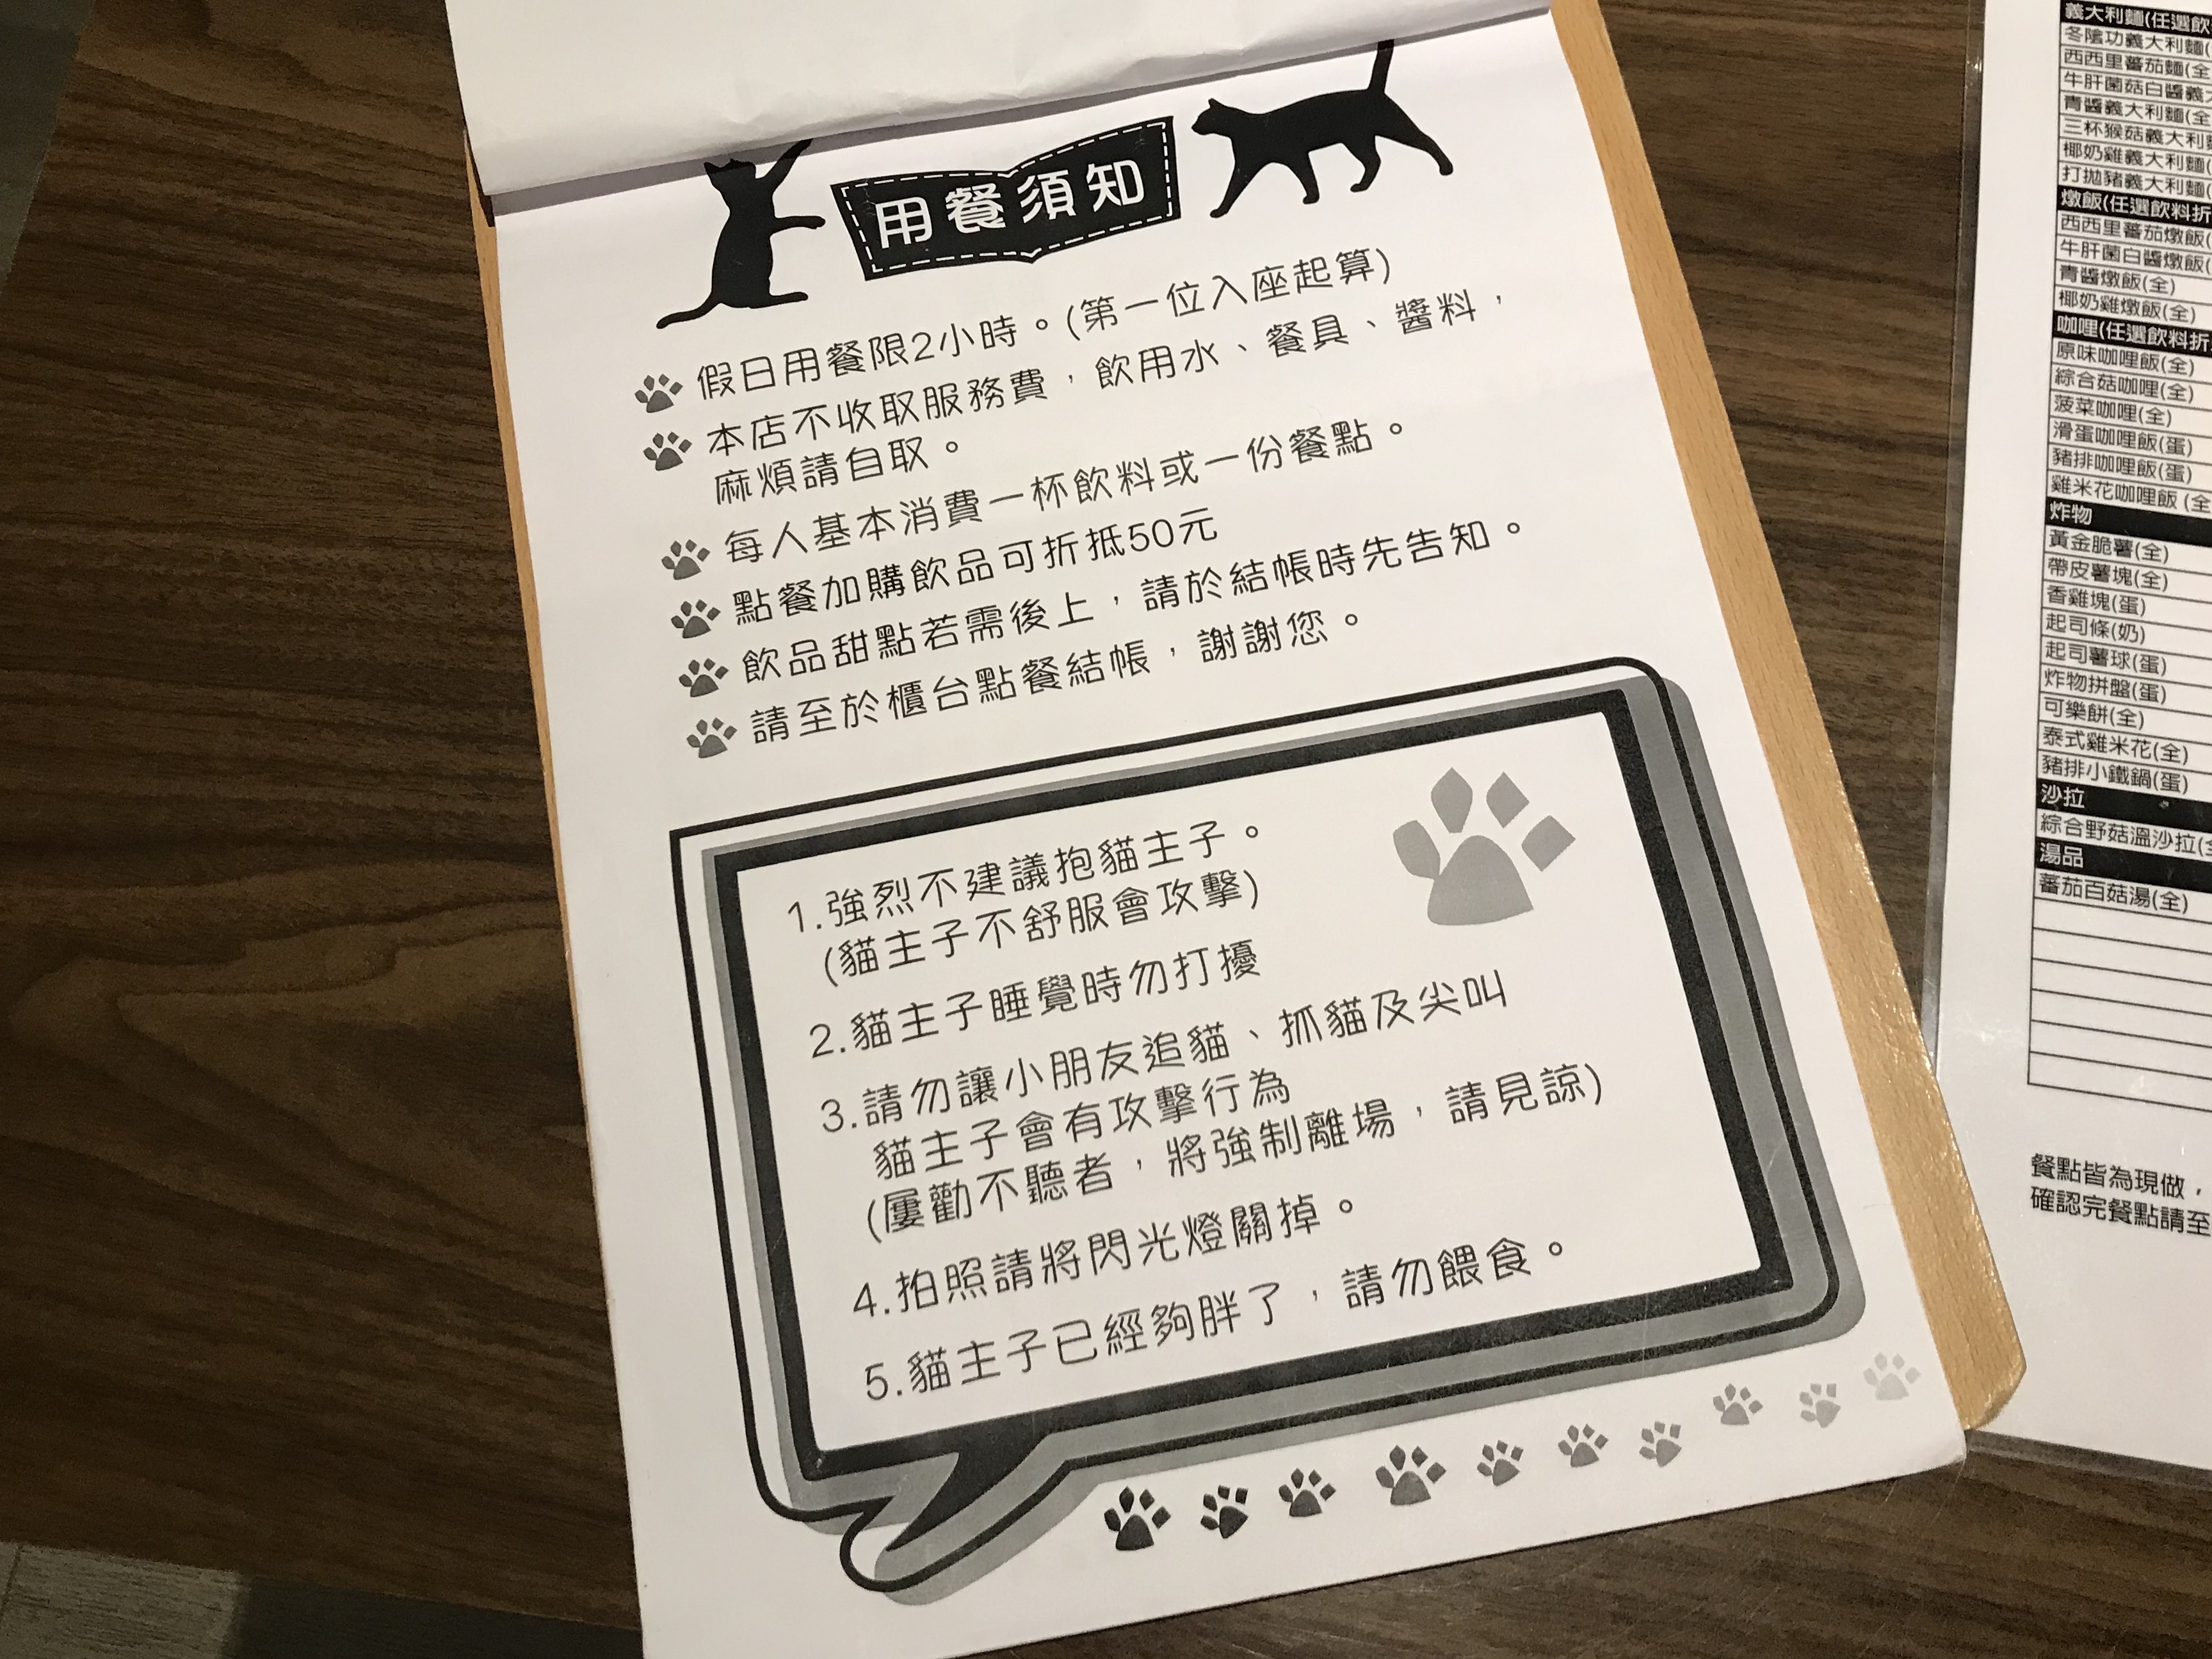 用餐須知
假日用餐限2小時。(第一位入座起算)
本店不收取服務費，飲用水、餐具、醬料，
麻煩請自取。
每人基本消費一杯飲料或一份餐點。
點餐加購飲品可折抵50元
飲品甜點若需後上，請於結帳時先告知。
請至於櫃台點餐結帳，謝謝您。
1.強烈不建議抱貓主子。
(貓主子不舒服會攻擊)
2.貓主子睡覺時勿打擾
3.請勿讓小朋友追貓、抓貓及尖叫
貓主子會有攻擊行為
(屢勸不聽者，將強制離場，請見諒)
4.拍照請將閃光燈關掉。
5.貓主子已經夠胖了，請勿餵食。
義大利麵(任選飲
冬陰功義大利麵(
西西里蕃茄麵(全
牛肝菌菇白醬義
青醬義大利麵(全
三杯猴菇義大利
椰奶雞義大利麵(
打拋豬義大利麵(
燉飯(任選飲料折
西西里蕃茄燉飯(
牛肝菌白醬燉飯(
青醬燉飯(全)
椰奶雞燉飯(全)
咖哩(任選飲料折
原味咖哩飯(全)
綜合菇咖哩(全)
菠菜咖哩(全)
滑蛋咖哩飯(蛋)
豬排咖哩飯(蛋)
雞米花咖哩飯(全
炸物
黃金脆薯(全)
帶皮薯塊(全)
香雞塊(蛋)
起司條(奶)
起司薯球(蛋)
炸物拼盤(蛋)
可樂餅(全)
泰式雞米花(全)
豬排小鐵鍋(蛋)
沙拉
綜合野菇溫沙拉(
湯品
蕃茄百菇湯(全)
餐點皆為現做，
確認完餐點請至